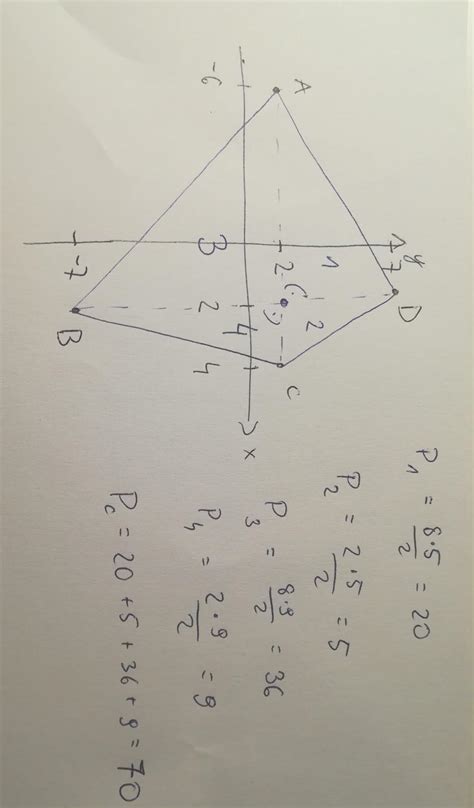 y
7
D
1
2
A
2
C
-6
3
2
4
4
x
-7
B
P₁ = 8·5/2 = 20
P₂ = 2·5/2 = 5
P₃ = 8·9/2 = 36
P₄ = 2·9/2 = 9
Pc = 20 + 5 + 36 + 9 = 70